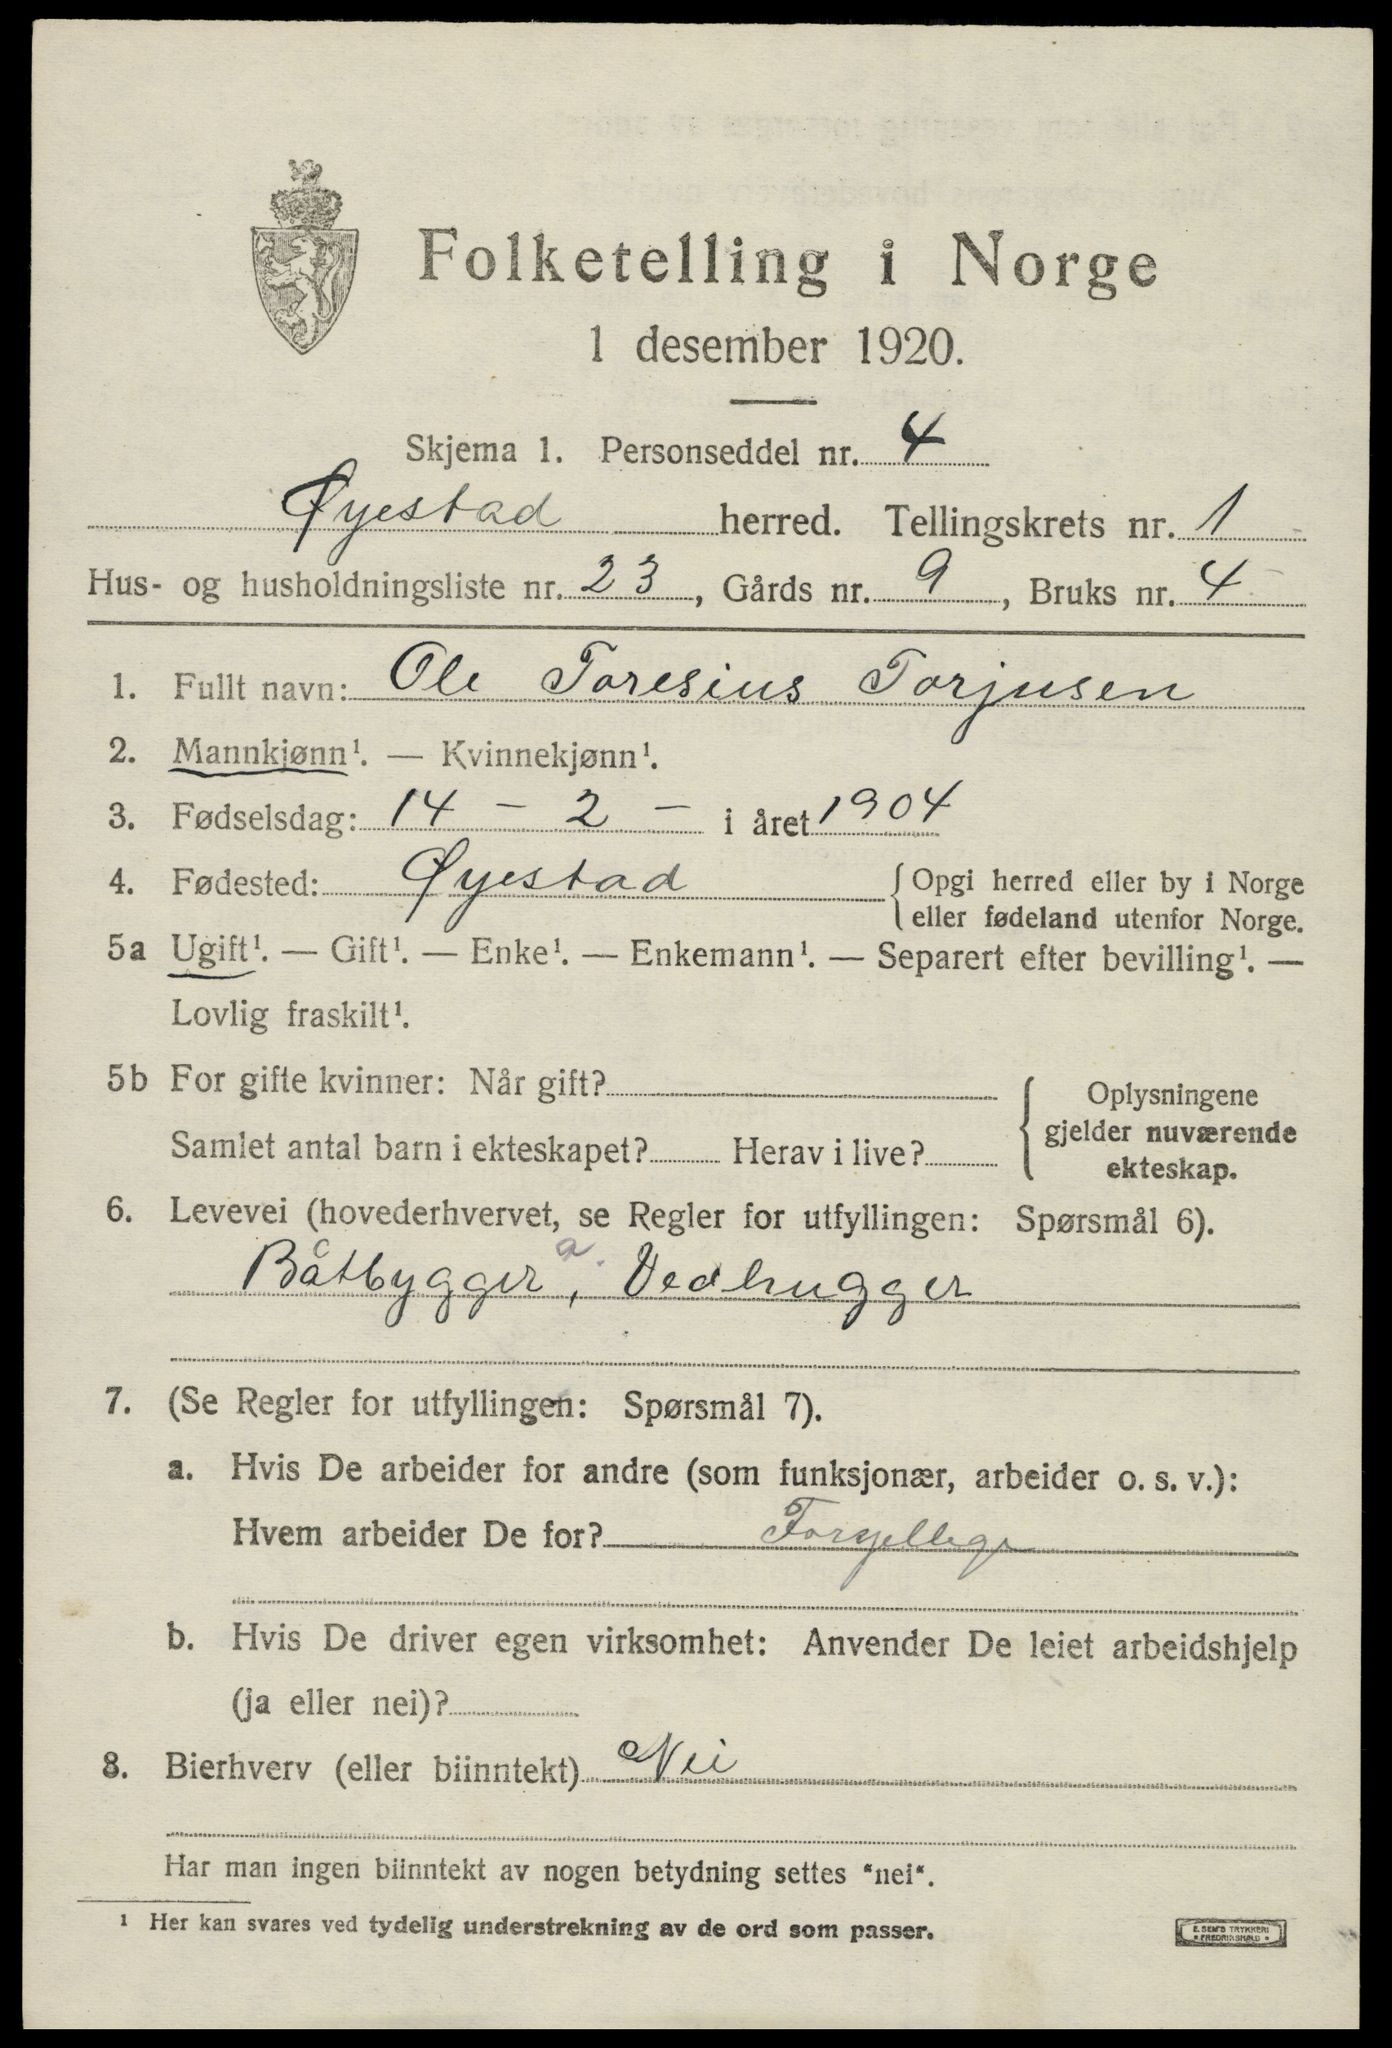 Folketelling i Norge
1 desember 1920.
Skjema 1. Personseddel nr. 4
Øyestad herred. Tellingskrets nr. 1
Hus- og husholdningsliste nr. 23, Gårds nr. 9, Bruks nr. 4
1. Fullt navn: Ole Toresius Torjusen
2. Mannkjønn¹. — Kvinnekjønn¹.
3. Fødselsdag: 14 - 2 - i året 1904
4. Fødested: Øyestad { Opgi herred eller by i Norge
eller fødeland utenfor Norge.
5a Ugift¹. — Gift¹. — Enke¹. — Enkemann¹. — Separert efter bevilling¹. —
Lovlig fraskilt¹.
5b For gifte kvinner: Når gift?
Samlet antal barn i ekteskapet? Herav i live?
{ Oplysningene
gjelder nuværende
ekteskap.
6. Levevei (hovederhvervet, se Regler for utfyllingen: Spørsmål 6).
Båtbygger a., Vedhugger
7. (Se Regler for utfyllingen: Spørsmål 7).
a. Hvis De arbeider for andre (som funksjonær, arbeider o. s. v.):
Hvem arbeider De for? Forsjellige
b. Hvis De driver egen virksomhet: Anvender De leiet arbeidshjelp
(ja eller nei)?
8. Bierhverv (eller biinntekt) Nei
Har man ingen biinntekt av nogen betydning settes "nei".
¹ Her kan svares ved tydelig understrekning av de ord som passer.
E. SEM'S TRYKKERI
FREDRIKSHALD